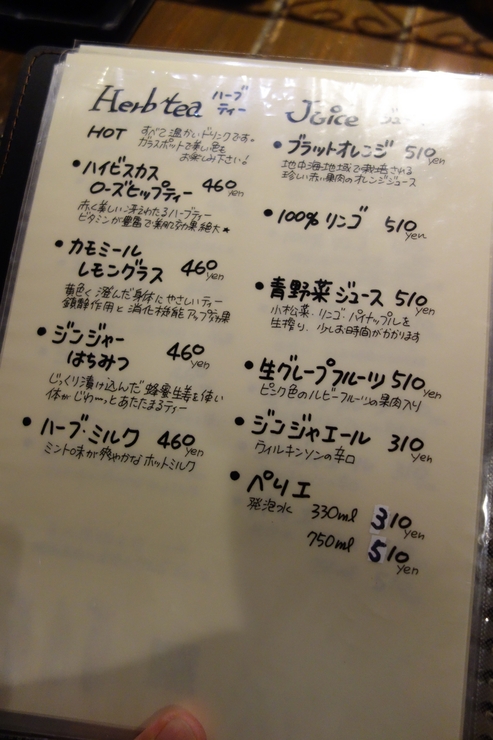 Herb tea ハーブ
ティー
HOT すべて温かいドリンクです。
ガラスポットで楽しい色も
お楽しみ下さい!
• ハイビスカス
ローズヒップティー 460 yen
赤く美しい冴えわたるハーブティー
ビタミンが豊富で美肌効果絶大★
• カモミール
レモングラス 460 yen
黄色く澄んだ身体にやさしいティー
鎮静作用と消化機能アップ効果
• ジンジャー
はちみつ 460 yen
じっくり漬け込んだ蜂蜜生姜を使い
体がじわ〜っとあたたまるティー
• ハーブ・ミルク 460 yen
ミントの味が爽やかなホットミルク
Juice ジュ
• ブラットオレンジ 510 yen
地中海地域で栽培される
珍しい赤い果肉のオレンジジュース
• 100% リンゴ 510 yen
• 青野菜ジュース 510 yen
小松菜・リンゴ・パイナップルを
生搾り、少しお時間がかかります
• 生グレープフルーツ 510 yen
ピンク色のルビーフルーツの果肉入り
• ジンジャエール 310 yen
ウィルキンソンの辛口
• ペリエ
発泡水 330ml 310 yen
750ml 510 yen